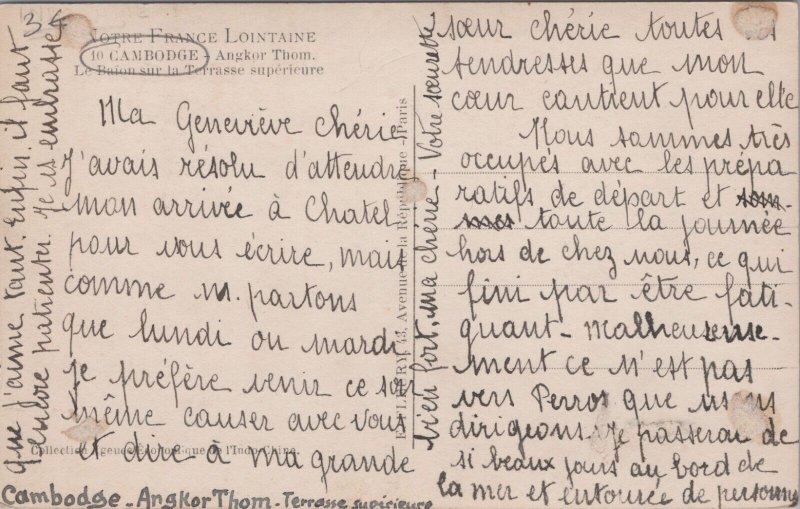 34
NOTRE FRANCE LOINTAINE
10 CAMBODGE - Angkor Thom.
Le Baïon sur la Terrasse supérieure
Ma Geneviève chérie
J'avais résolu d'attendre
mon arrivée à Chatel
pour vous écrire, mais
comme n. partons
que lundi ou mardi
je préfère venir ce soir
même causer avec vous
et dire à ma grande
sœur chérie toutes les
tendresses que mon
cœur contient pour elle
Nous sommes très
occupés avec les prépa
ratifs de départ et som-
mes toute la journée
hors de chez nous, ce qui
fini par être fati-
guant - Malheureuse-
ment ce n'est pas
vers Perros que nous n.s
dirigeons, je passerai de
si beaux jours au bord de
la mer et entourée de personnes
que j'aime tant. Enfin, il faut
encore patienter. Je vs embrasse
bien fort, ma chérie - Votre sœurette
43, Avenue de la République - Paris
Collection Agence Économique de l'Indo-Chine.
Cambodge - Angkor Thom - Terrasse supérieure